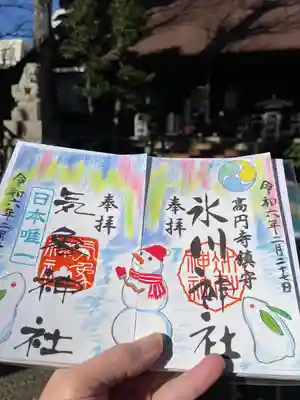 令和六年一月二十七日
高円寺鎮守
氷川神社
奉拝
奉拝
気象神社
日本唯一
令和六年